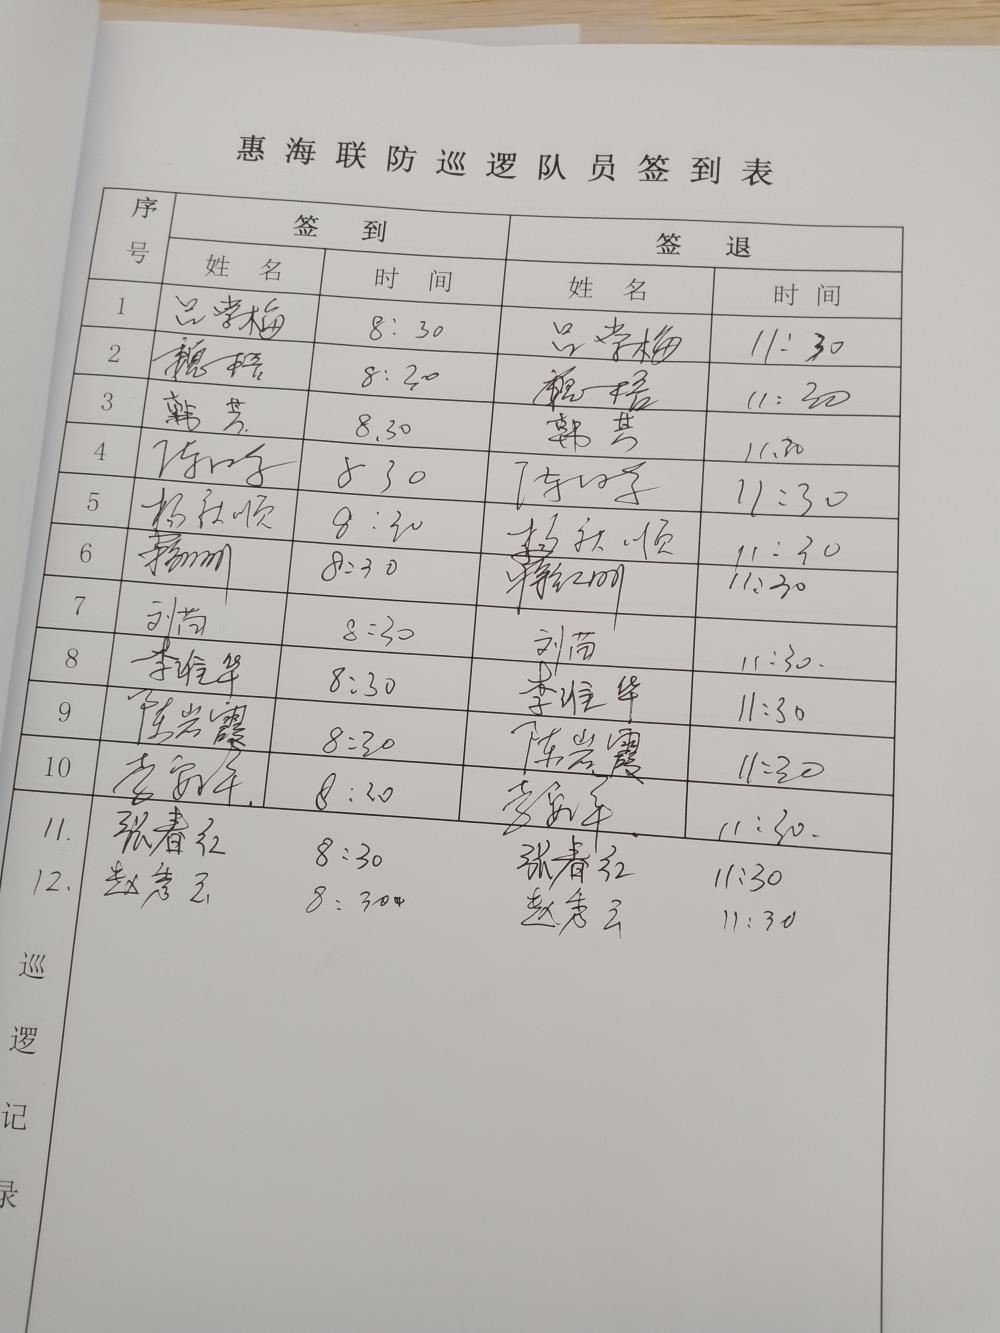 惠海联防巡逻队员签到表
序号 签到 签退
姓名 时间 姓名 时间
1 吕学梅 8:30 吕学梅 11:30
2 8:30 11:30
3 韩其 8.30 韩其 11.30
4 8 30 11:30
5 杨秋顺 8:30 杨秋顺 11:30
6 8:30 11:30
7 刘苗 8:30 刘苗 11:30.
8 李维华 8:30 李维华 11:30
9 陈岩霞 8:30 陈岩霞 11:30
10 8:30 11:30.
11. 张春红 8:30 张春红 11:30
12. 赵秀云 8:30 赵秀云 11:30
巡逻记录